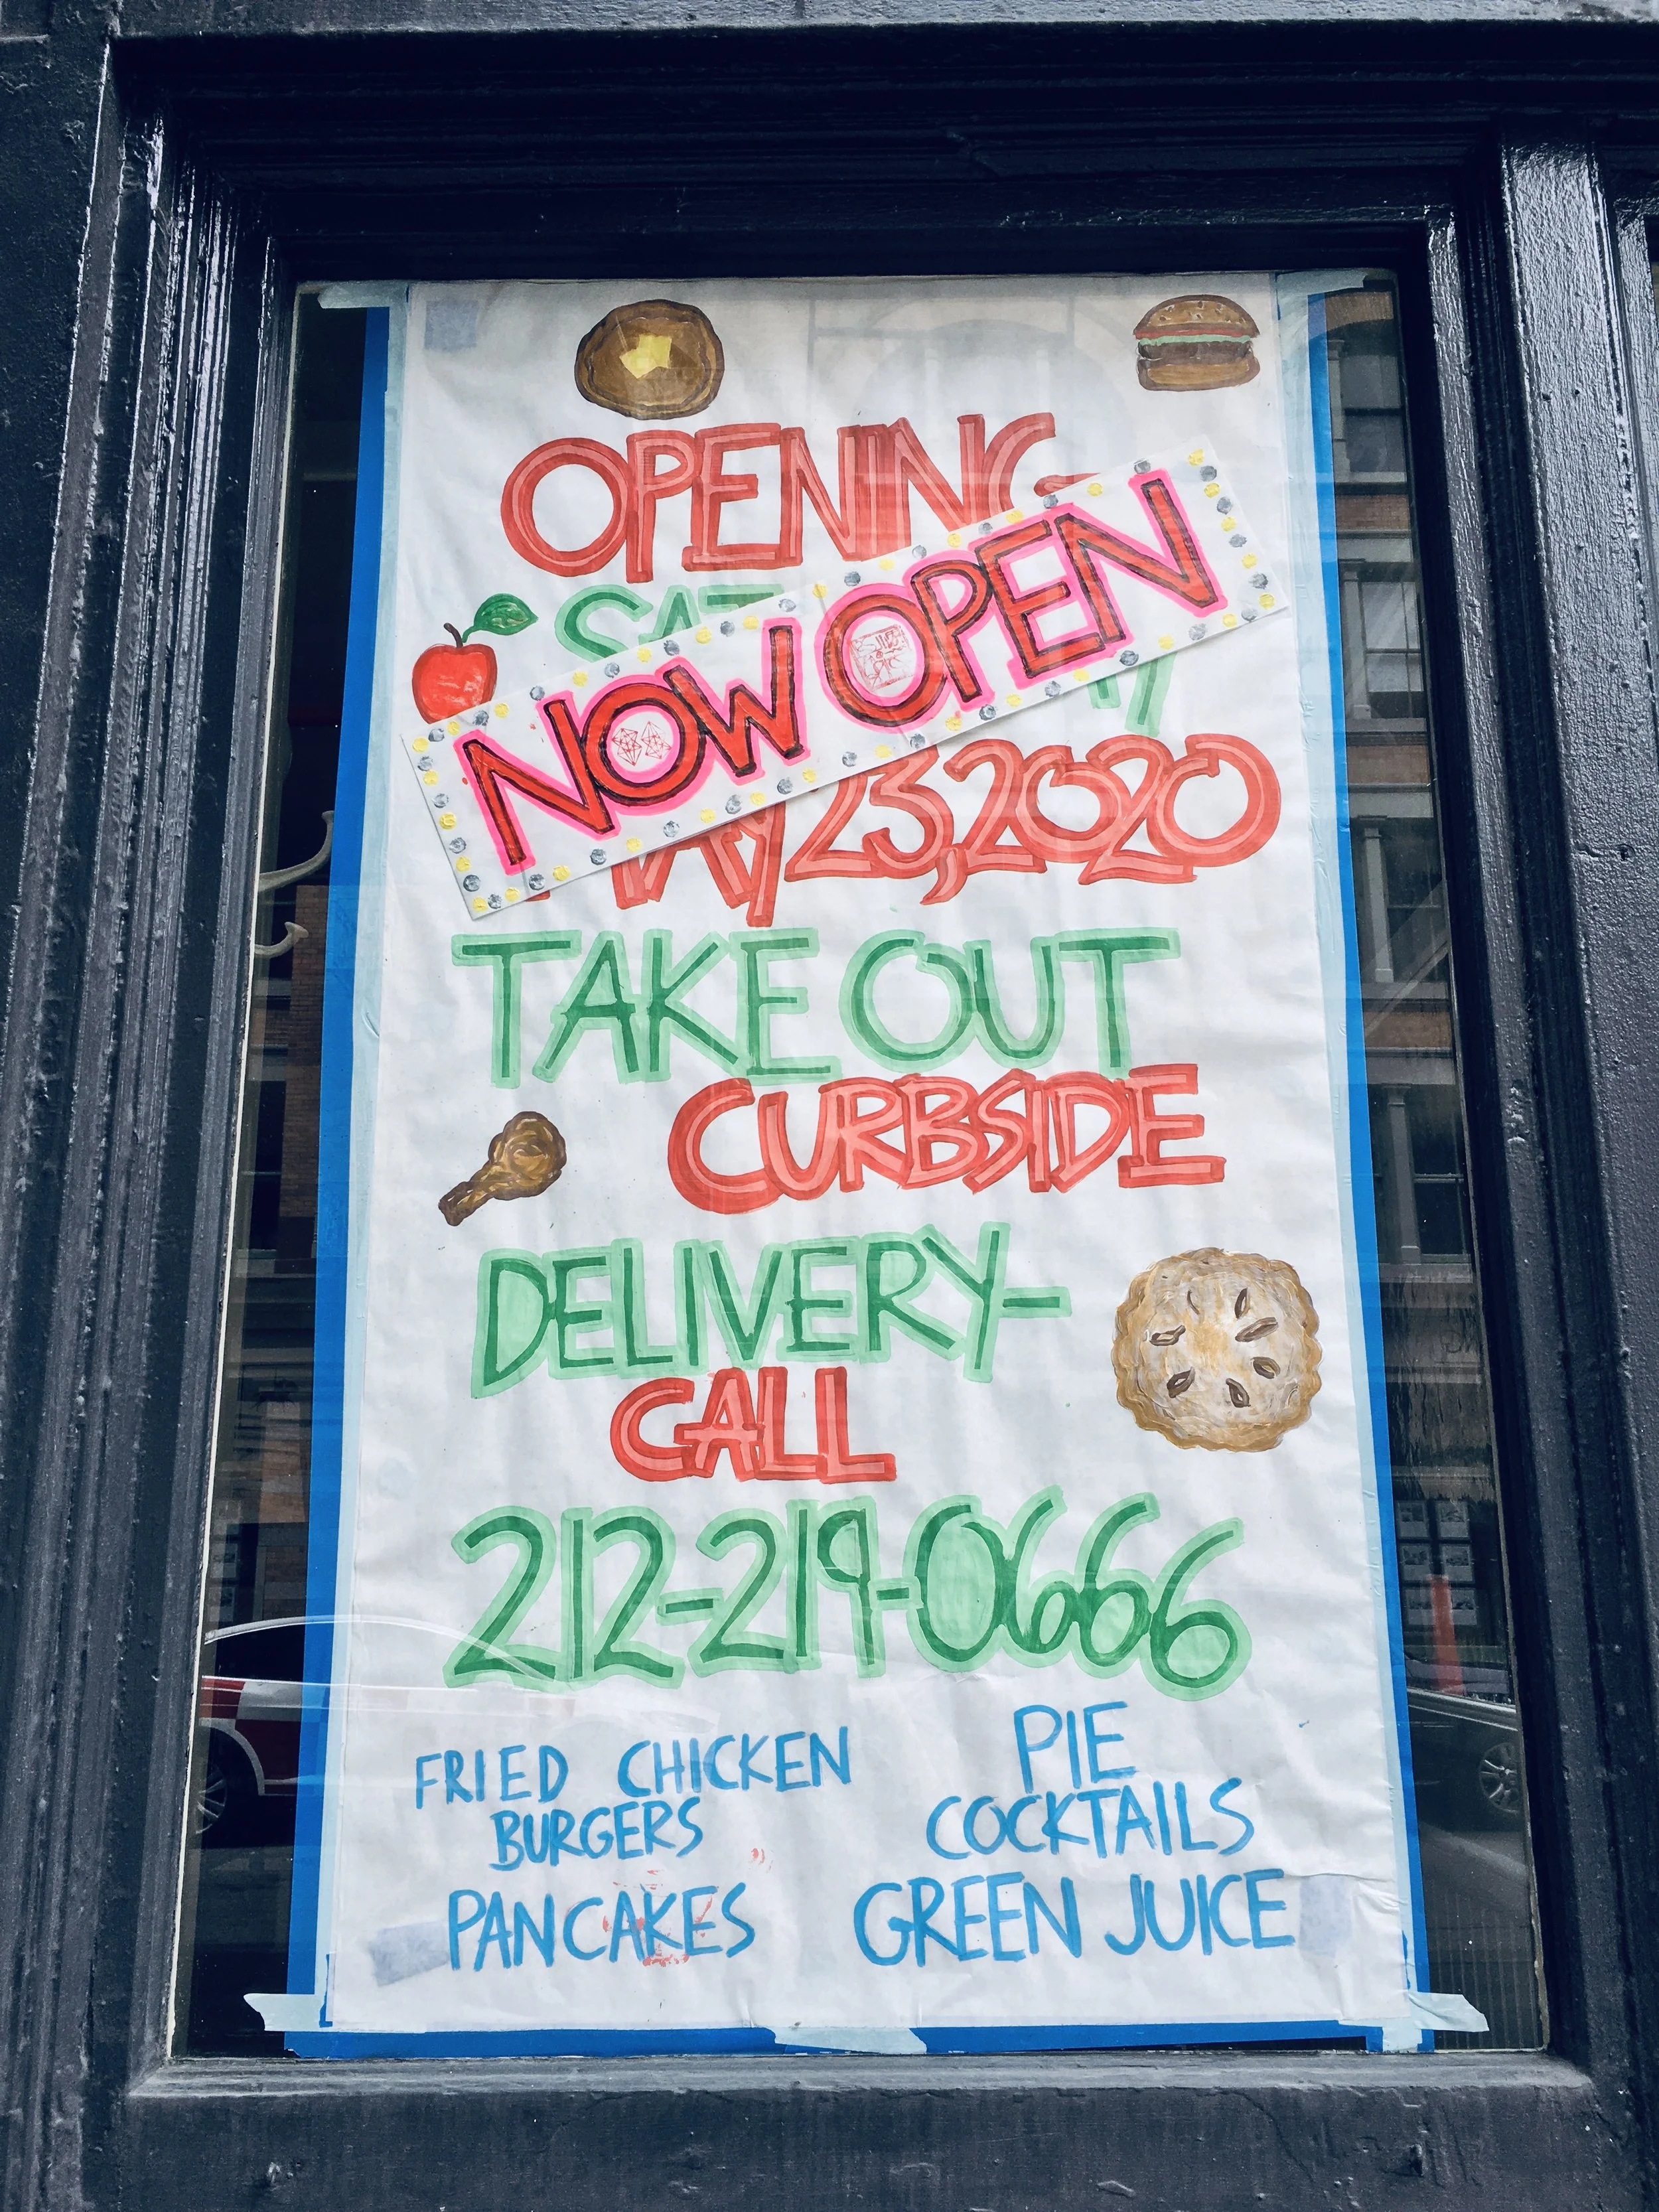 OPENING
NOW OPEN
23, 2020
TAKE OUT
CURBSIDE
DELIVERY-
CALL
212-219-0666
FRIED CHICKEN
BURGERS
PANCAKES
PIE
COCKTAILS
GREEN JUICE